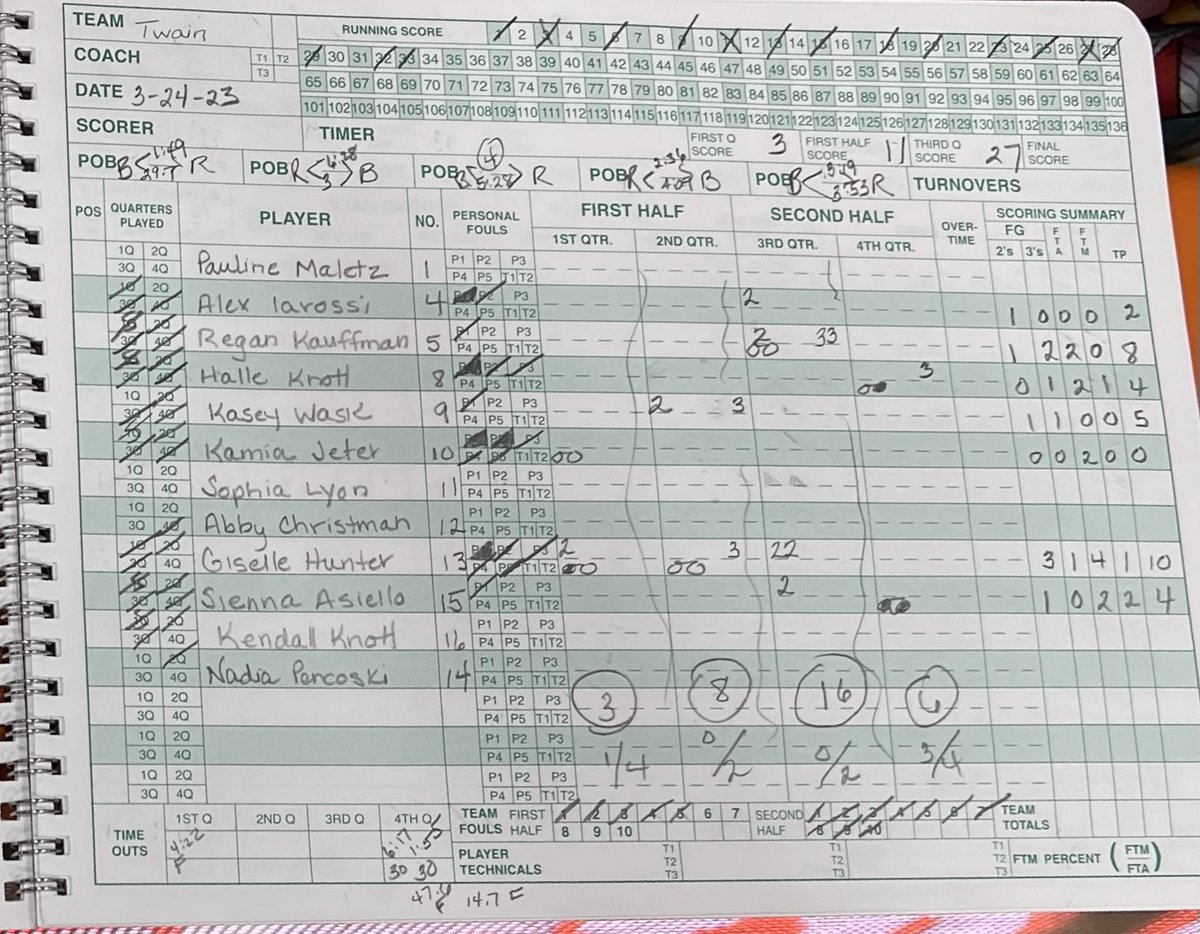 TEAM Twain RUNNING SCORE 1 2 3 4 5 6 7 8 9 10 11 12 13 14 15 16 17 18 19 20 21 22 23 24 25 26 27 28
COACH T1 T2 T3 29 30 31 32 33 34 35 36 37 38 39 40 41 42 43 44 45 46 47 48 49 50 51 52 53 54 55 56 57 58 59 60 61 62 63 64
65 66 67 68 69 70 71 72 73 74 75 76 77 78 79 80 81 82 83 84 85 86 87 88 89 90 91 92 93 94 95 96 97 98 99 100
DATE 3-24-23 101 102 103 104 105 106 107 108 109 110 111 112 113 114 115 116 117 118 119 120 121 122 123 124 125 126 127 128 129 130 131 132 133 134 135 136
SCORER TIMER FIRST Q SCORE 3 FIRST HALF SCORE 11 THIRD Q SCORE 27 FINAL SCORE
POB B 1:49 29.7 R POB R 3 B POB B 4 5:28 R POB R 2:36 B POB B 3:53 R TURNOVERS
POS QUARTERS PLAYED PLAYER NO. PERSONAL FOULS FIRST HALF SECOND HALF OVER-TIME SCORING SUMMARY
1ST QTR. 2ND QTR. 3RD QTR. 4TH QTR. FG 2's 3's FTA FTM TP
1Q 2Q Pauline Maletz 1 P1 P2 P3
3Q 4Q P4 P5 T1 T2
1Q 2Q Alex Iarossi 4 P1 P2 P3 2 1 0 0 0 2
3Q 4Q P4 P5 T1 T2
1Q 2Q Regan Kauffman 5 P1 P2 P3 2 33 1 2 2 0 8
3Q 4Q P4 P5 T1 T2 00
1Q 2Q Halle Knott 8 P1 P2 P3 3 0 1 2 1 4
3Q 4Q P4 P5 T1 T2
1Q 2Q Kasey Wasik 9 P1 P2 P3 2 3 1 1 0 0 5
3Q 4Q P4 P5 T1 T2
1Q 2Q Kamia Jeter 10 P1 P2 P3 0 0 2 0 0
3Q 4Q P4 P5 T1 T2 00
1Q 2Q Sophia Lyon 11 P1 P2 P3
3Q 4Q P4 P5 T1 T2
1Q 2Q Abby Christman 12 P1 P2 P3
3Q 4Q P4 P5 T1 T2
1Q 2Q Giselle Hunter 13 P1 P2 P3 2 3 22 3 1 4 1 10
3Q 4Q P4 P5 T1 T2 00 00
1Q 2Q Sienna Asiello 15 P1 P2 P3 2 1 0 2 2 4
3Q 4Q P4 P5 T1 T2
1Q 2Q Kendall Knott 16 P1 P2 P3
3Q 4Q P4 P5 T1 T2
1Q 2Q Nadia Percoski 14 P1 P2 P3
3Q 4Q P4 P5 T1 T2
1Q 2Q P1 P2 P3 3 8 16 6
3Q 4Q P4 P5 T1 T2
1Q 2Q P1 P2 P3
3Q 4Q P4 P5 T1 T2 1/4 0/2 0/2 3/4
1Q 2Q P1 P2 P3
3Q 4Q P4 P5 T1 T2
TIME OUTS 1ST Q 2ND Q 3RD Q 4TH Q TEAM FOULS FIRST HALF 1 2 3 4 5 6 7 8 9 10 SECOND HALF 1 2 3 4 5 6 7 8 9 10 TEAM TOTALS
4:22 F 6:17 1:55 30 30 PLAYER TECHNICALS T1 T2 T3 T1 T2 T3 T1 T2 T3 FTM PERCENT (FTM/FTA)
14.7 F